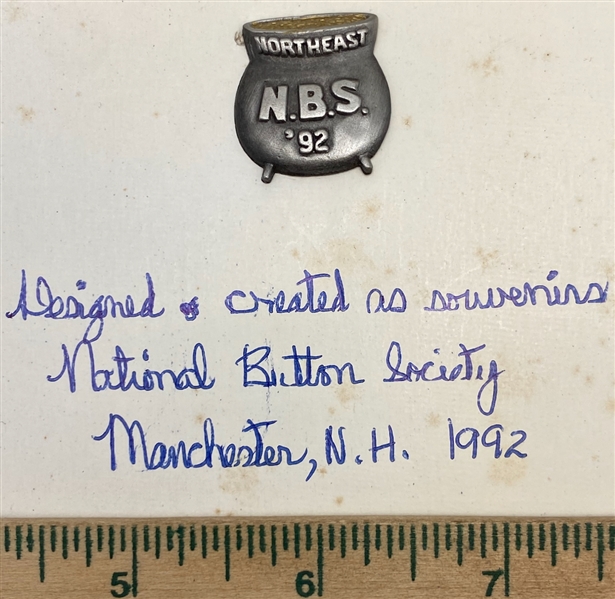 NORTHEAST
N.B.S.
'92
Designed & created as souvenirs
National Button Society
Manchester, N.H. 1992
5 6 7